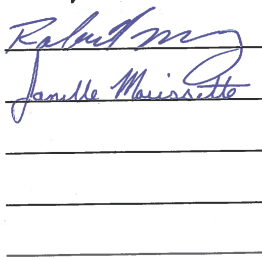 Robert
Janelle Morissette